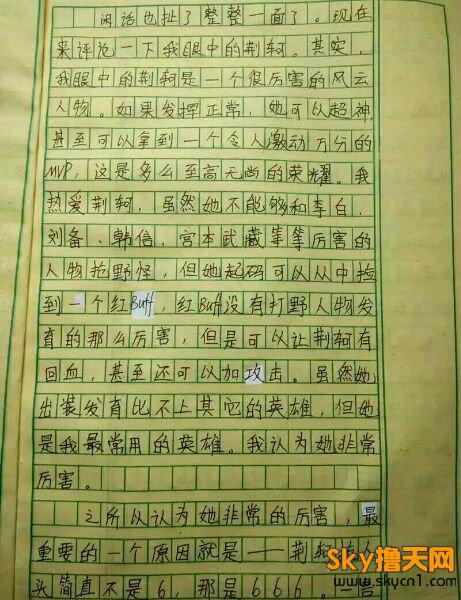 闲话也扯了整整一面了。现在
来评论一下我眼中的荆轲。其实，
我眼中的荆轲是一个很厉害的风云
人物。如果发挥正常，她可以超神，
甚至可以拿到一个令人激动万分的
MVP，这是多么至高无尚的荣耀。我
热爱荆轲，虽然她不能够和李白、
刘备、韩信、宫本武藏等等厉害的
人物抢野怪，但她起码可以从中捡
到一个红Buff，红Buff没有打野人物发
育的那么厉害，但是可以让荆轲有
回血，甚至还可以加攻击。虽然她
出装发育比不上其它的英雄，但她
是我最常用的英雄。我认为她非常
厉害。
之所以认为她非常的厉害，最
重要的一个原因就是——荆轲
头简直不是6，那是666。一
Sky撸天网
www.skycn1.com